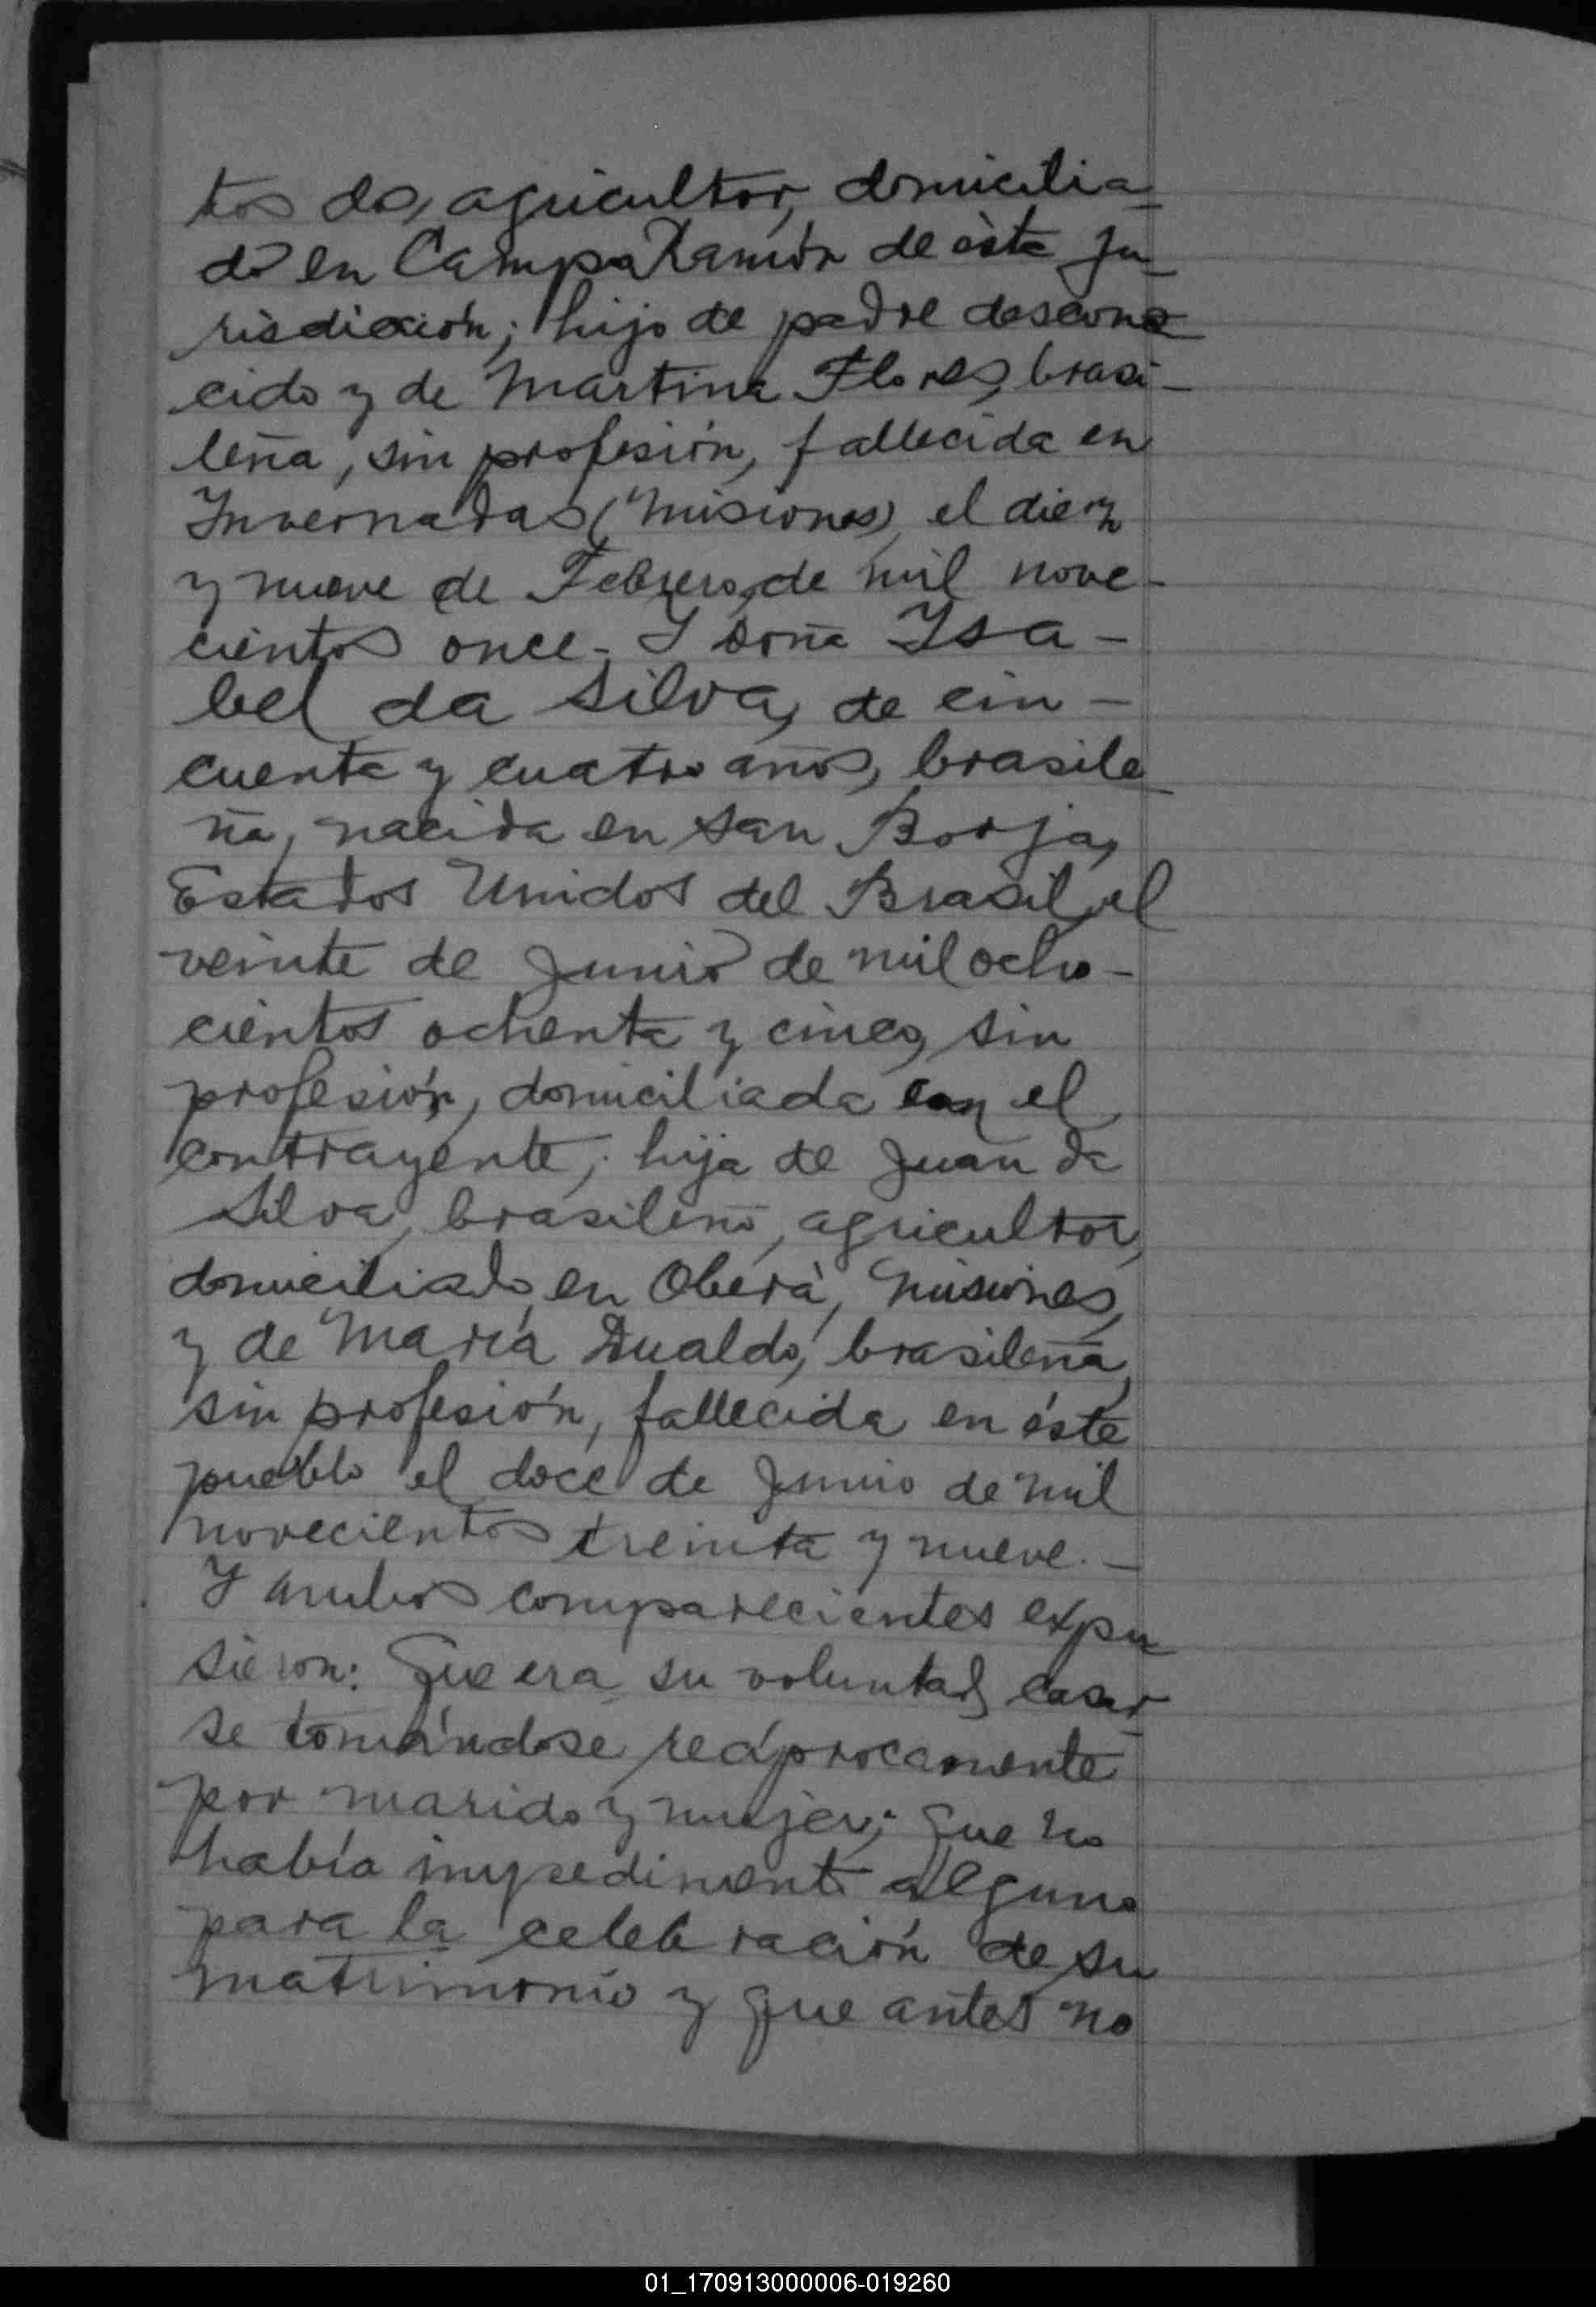 tos dos, agricultor, domicilia-
do en Campo Ramón de ésta ju-
risdicción; hijo de padre descono-
cido y de Martina Flores, brasi-
leña, sin profesión, fallecida en
Invernadas (Misiones) el diez
y nueve de Febrero, de mil nove-
cientos once.- Y doña Ysa-
bel da Silva, de cin-
cuenta y cuatro años, brasile-
ña, nacida en San Borja,
Estados Unidos del Brasil, el
veinte de Junio de mil ocho-
cientos ochenta y cinco, sin
profesión, domiciliada con el
contrayente; hija de Juan da
Silva, brasileño, agricultor,
domiciliado en Oberá, Misiones,
y de María Dualdo, brasileña,
sin profesión, fallecida en éste
pueblo el doce de Junio de mil
novecientos treinta y nueve.-
Y ambos comparecientes expu-
sieron: Que era su voluntad casar-
se tomándose recíprocamente
por marido y mujer; que no
había impedimento alguno
para la celebración de su
matrimonio y que antes no
01_170913000006-019260